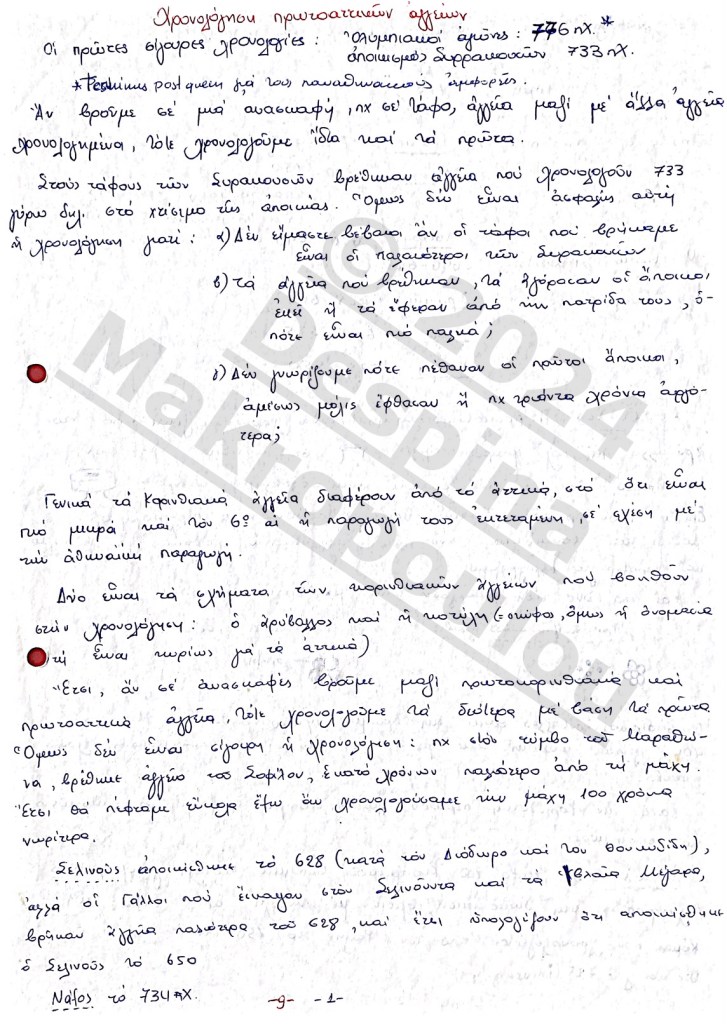 Χρονολόγηση πρωτοαττικών ἀγγείων
Οἱ πρῶτες σίγουρες χρονολογίες : Ὀλυμπιακοί ἀγῶνες : 776 πΧ. *
ἀποικισμός Συρρακουσῶν 733 πΧ.
* Terminus post quem γιά τους παναθηναϊκούς ἀμφορεῖς.
Ἄν βροῦμε σέ μιά ανασκαφή, πχ σέ τάφο, ἀγγεῖα μαζί μέ ἄλλα ἀγγεῖα
χρονολογημένα, τότε χρονολογοῦμε ἴδια καί τά πρῶτα.
Στούς τάφους τῶν Συρακουσῶν βρέθηκαν ἀγγεῖα πού χρονολογοῦν 733
γύρω δηλ. στό χτίσιμο τῆς ἀποικίας. Ὅμως δέν εἶναι ἀσφαλής αυτή
ἡ χρονολόγηση γιατί : α) Δέν εἴμαστε βέβαιοι ἄν οἱ τάφοι πού βρήκαμε
εἶναι οἱ παλαιότεροι τῶν Συρακουσῶν
β) τά ἀγγεῖα πού βρέθηκαν, τά ἀγόρασαν οἱ ἄποικοι
ἐκεῖ ἤ τά ἔφεραν ἀπό τήν πατρίδα τους, ὁ-
πότε εἶναι πιό παλιά;
γ) Δέν γνωρίζουμε πότε πέθαναν οἱ πρῶτοι ἄποικοι,
ἀμέσως μόλις ἔφθασαν ἤ πχ τριάντα χρόνια ἀργό-
τερα;
Γενικά τά Κορινθιακά ἀγγεῖα διαφέρουν ἀπό τά ἀττικά, στό ὅτι εἶναι
πιό μικρά καί τόν 6ο αἰ ἡ παραγωγή τους ἐκτεταμένη, σέ σχέση μέ
τήν ἀθηναϊκή παραγωγή.
Δύο εἶναι τά σχήματα τῶν κορινθιακῶν ἀγγείων πού βοηθοῦν
στήν χρονολόγηση : ὁ ἀρύβαλλος καί ἡ κοτύλη (= σκύφος, ὅμως ἡ ὀνομασία
εἶναι κυρίως γιά τά ἀττικά)
Ἔτσι, ἄν σέ ἀνασκαφές βροῦμε μαζί πρωτοκορινθιακά καί
πρωτοαττικά ἀγγεῖα, τότε χρονολογοῦμε τά δεύτερα μέ βάση τά πρῶτα
Ὅμως δέν εἶναι σίγουρη ἡ χρονολόγηση : πχ στόν τύμβο τοῦ Μαραθώ-
να, βρέθηκε ἀγγεῖο τοῦ Σοφίλου, ἑκατό χρόνων παλιότερο ἀπό τή μάχη.
Ἔτσι θά πέφταμε εὔκολα ἔξω ἄν χρονολογούσαμε τήν μάχη 100 χρόνια
νωρίτερα.
Σελινούς ἀποικίσθηκε τό 628 (κατά τόν Διόδωρο καί τον Θουκυδίδη),
ἀλλά οἱ Γάλλοι πού ἔσκαψαν στόν Σελινοῦντα καί τά Ὑβλαῖα Μέγαρα,
βρῆκαν ἀγγεῖα παλιότερα τοῦ 628, καί ἔτσι ὑπολογίζουν ὅτι αποικίσθηκε
ὁ Σελινοῦς τό 650
Νάξος τό 734 πΧ.
-9- -1-
© 2024
Despina
Makropoulou